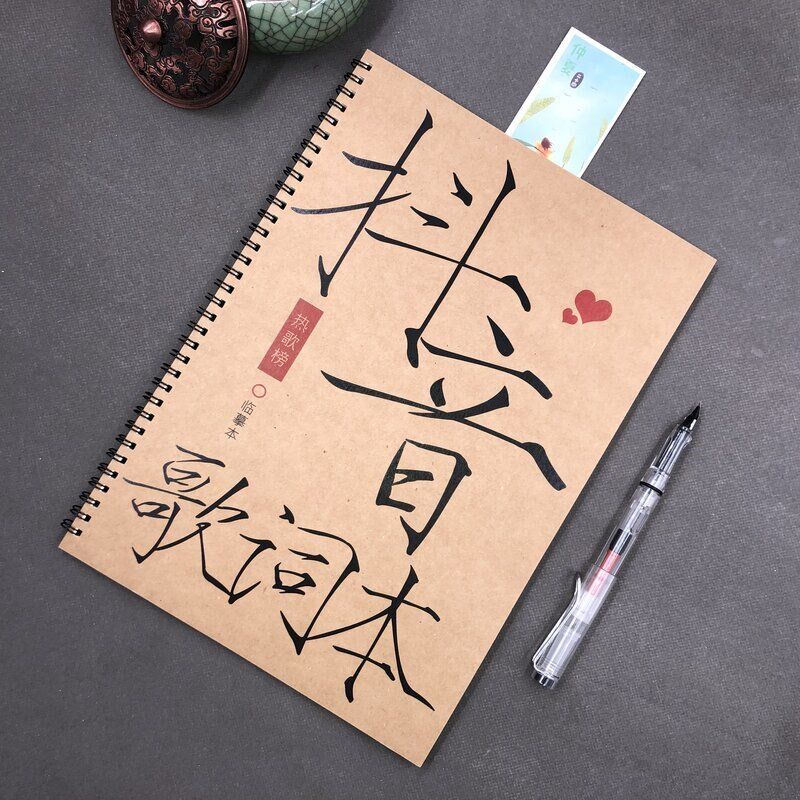 抖音
歌词本
热歌榜
临摹本
仲夏